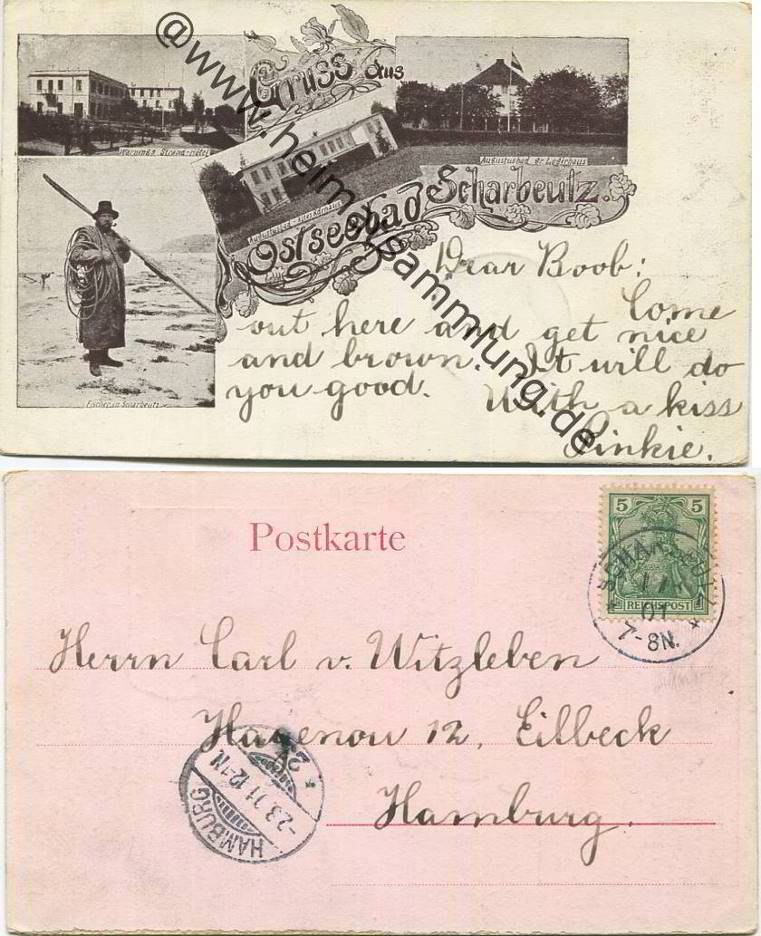 @www.heimatsammlung.de
Gruss aus
Ostseebad Scharbeutz.
Augustusbad gr. Logirhaus
Fischer in Scharbeutz
Dear Boob:
Come
out here and get nice
and brown. It will do
you good. With a kiss
Pinkie.
Postkarte
5 5
REICHSPOST
SCHARBEUTZ
7-8N.
Herrn Carl v. Witzleben
12, Eilbeck
Hamburg.
HAMBURG
12-1N.